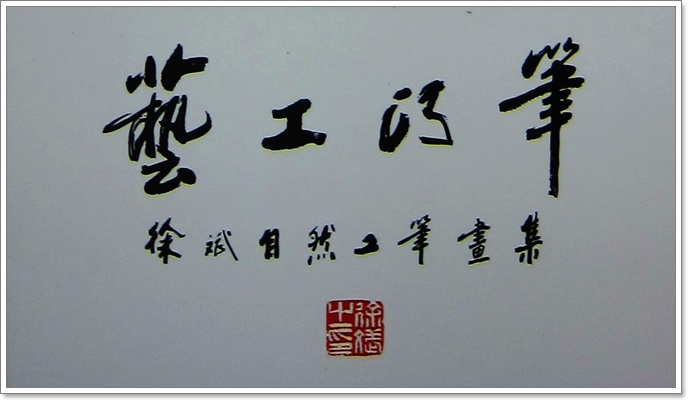 藝工巧筆
徐斌自然工筆畫集
徐斌之印